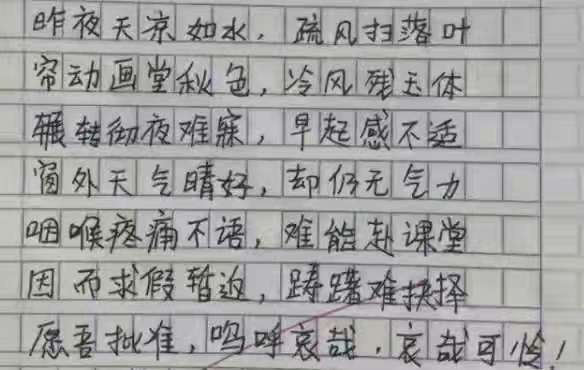 昨夜天凉如水，疏风扫落叶
帘动画堂秋色，冷风残玉体
辗转彻夜难寐，早起感不适
窗外天气晴好，却仍无气力
咽喉疼痛不语，难能赴课堂
因而求假暂返，踌躇难抉择
愿吾批准，呜呼哀哉，哀哉可怜！